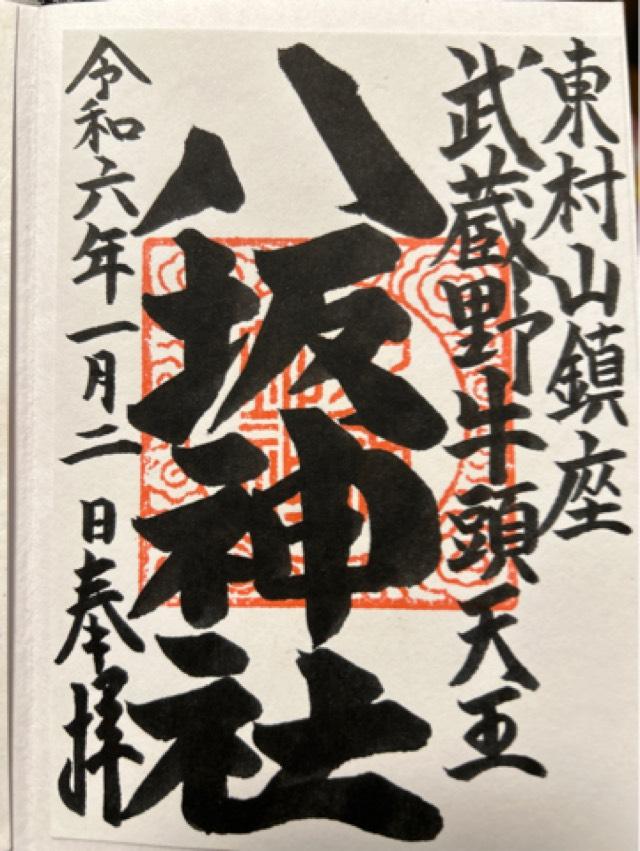 東村山鎮座
武蔵野牛頭天王
八坂神社
令和六年一月二日奉拝